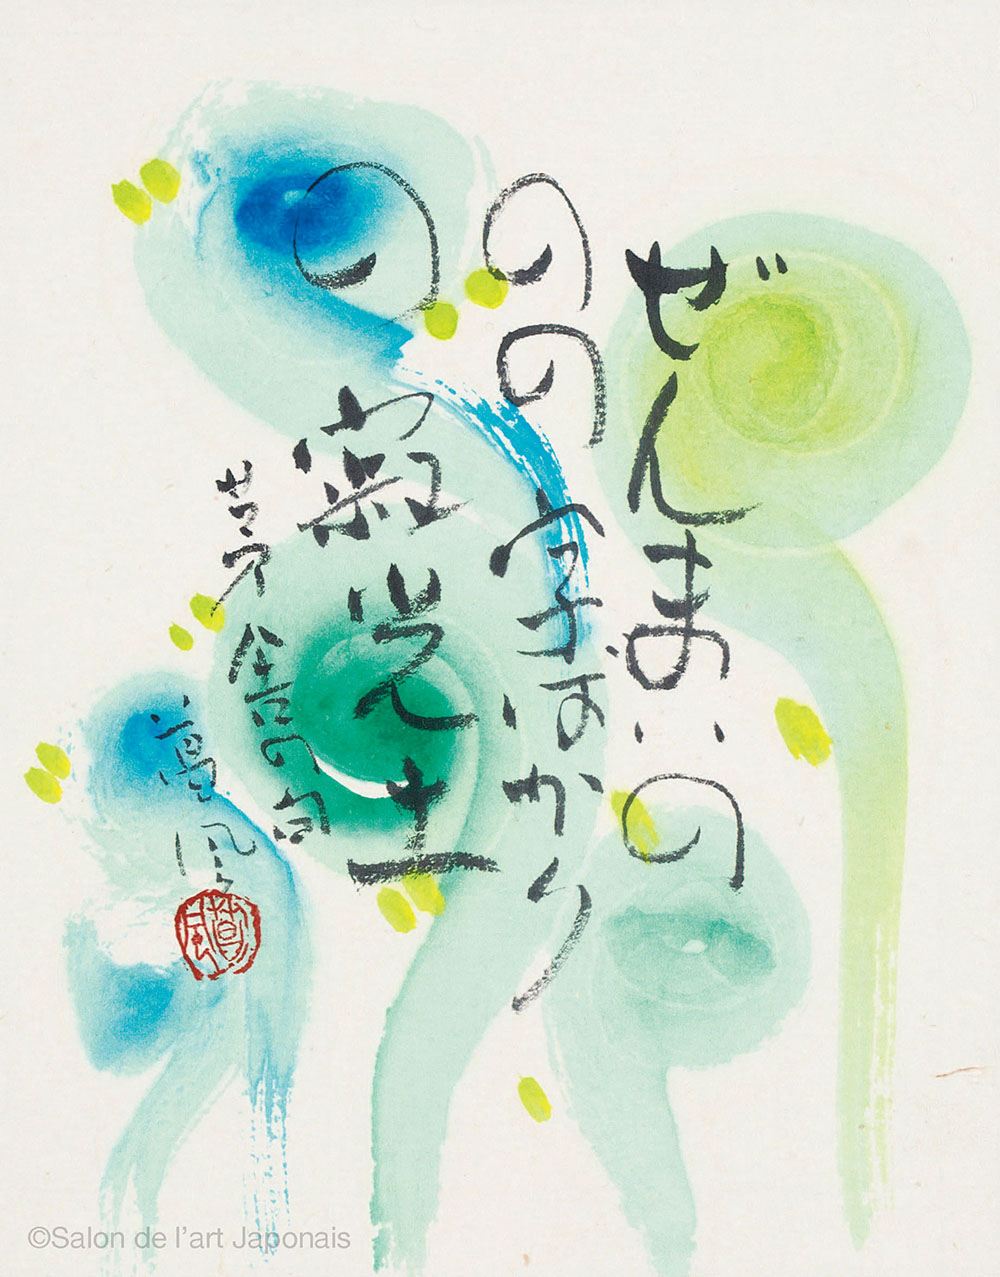 ぜんまいの
のの字ばかり
の寂光土
茅舎の句
©Salon de l'art Japonais